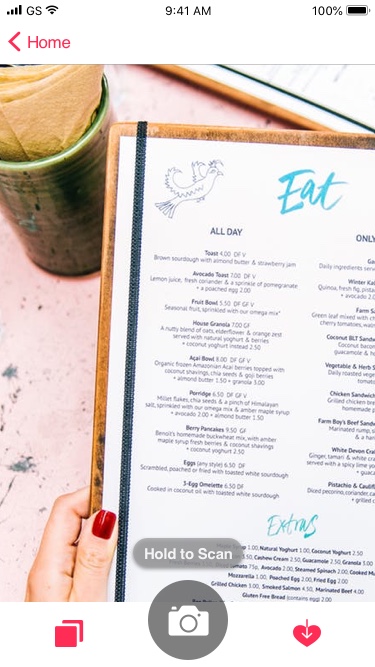 GS
9:41 AM
100%
Home
Eat
ALL DAY
ONLY
Toast 4.00 DF V
Brown sourdough with almond butter & strawberry jam
Avocado Toast 7.00 DF V
Lemon juice, fresh coriander & a sprinkle of pomegranate
+ a poached egg 2.00
Fruit Bowl 5.50 DF GF V
Seasonal fruit, sprinkled with our omega mix*
House Granola 7.00 GF
A nutty blend of oats, elderflower & orange zest
served with natural yoghurt & berries
+ coconut yoghurt instead 2.50
Açai Bowl 8.00 DF GF V
Organic frozen Amazonian Açai berries topped with
coconut shavings, chia seeds & goji berries
+ almond butter 1.50 + granola 3.00
Porridge 6.50 DF GF V
Millet flakes, chia seeds & a pinch of Himalayan
salt, sprinkled with our omega mix & amber maple syrup
+ avocado 2.00 + almond butter 1.50
Berry Pancakes 9.50 GF
Benoit's homemade buckwheat mix, with amber
maple syrup fresh berries & coconut shavings
+ coconut yoghurt 2.50
Eggs (any style) 6.50 DF
Scrambled, poached or fried with toasted white sourdough
3-Egg Omelette 6.50 DF
Cooked in coconut oil with toasted white sourdough
Daily ingredients
Winter
Quinoa, fresh fig,
+ avocado
Farm
Green leaf mixed with
cherry tomatoes,
Coconut BLT
Coconut
guacamole &
Vegetable & Herb
Daily roasted
Chicken
Grilled chicken
homemade
Farm Boy's Beef
Marinated rump,
& a
White Devon
Ginger, tamari & white
served with a spicy lime
Pistachio &
Diced pecorino,
+ grilled
Extras
1.00, Natural Yoghurt 1.00, Coconut Yoghurt 2.50
Cashew Cream 2.50, Guacamole 2.50, Granola 3.00
75p, Avocado 2.00, Steamed Spinach 2.00,
Mozzarella 1.00, Poached Egg 2.00, Fried Egg 2.00
Grilled Chicken 3.00, Smoked Salmon 4.50, Marinated Beef 4.00
Gluten Free Bread (contains egg) 2.00
Hold to Scan